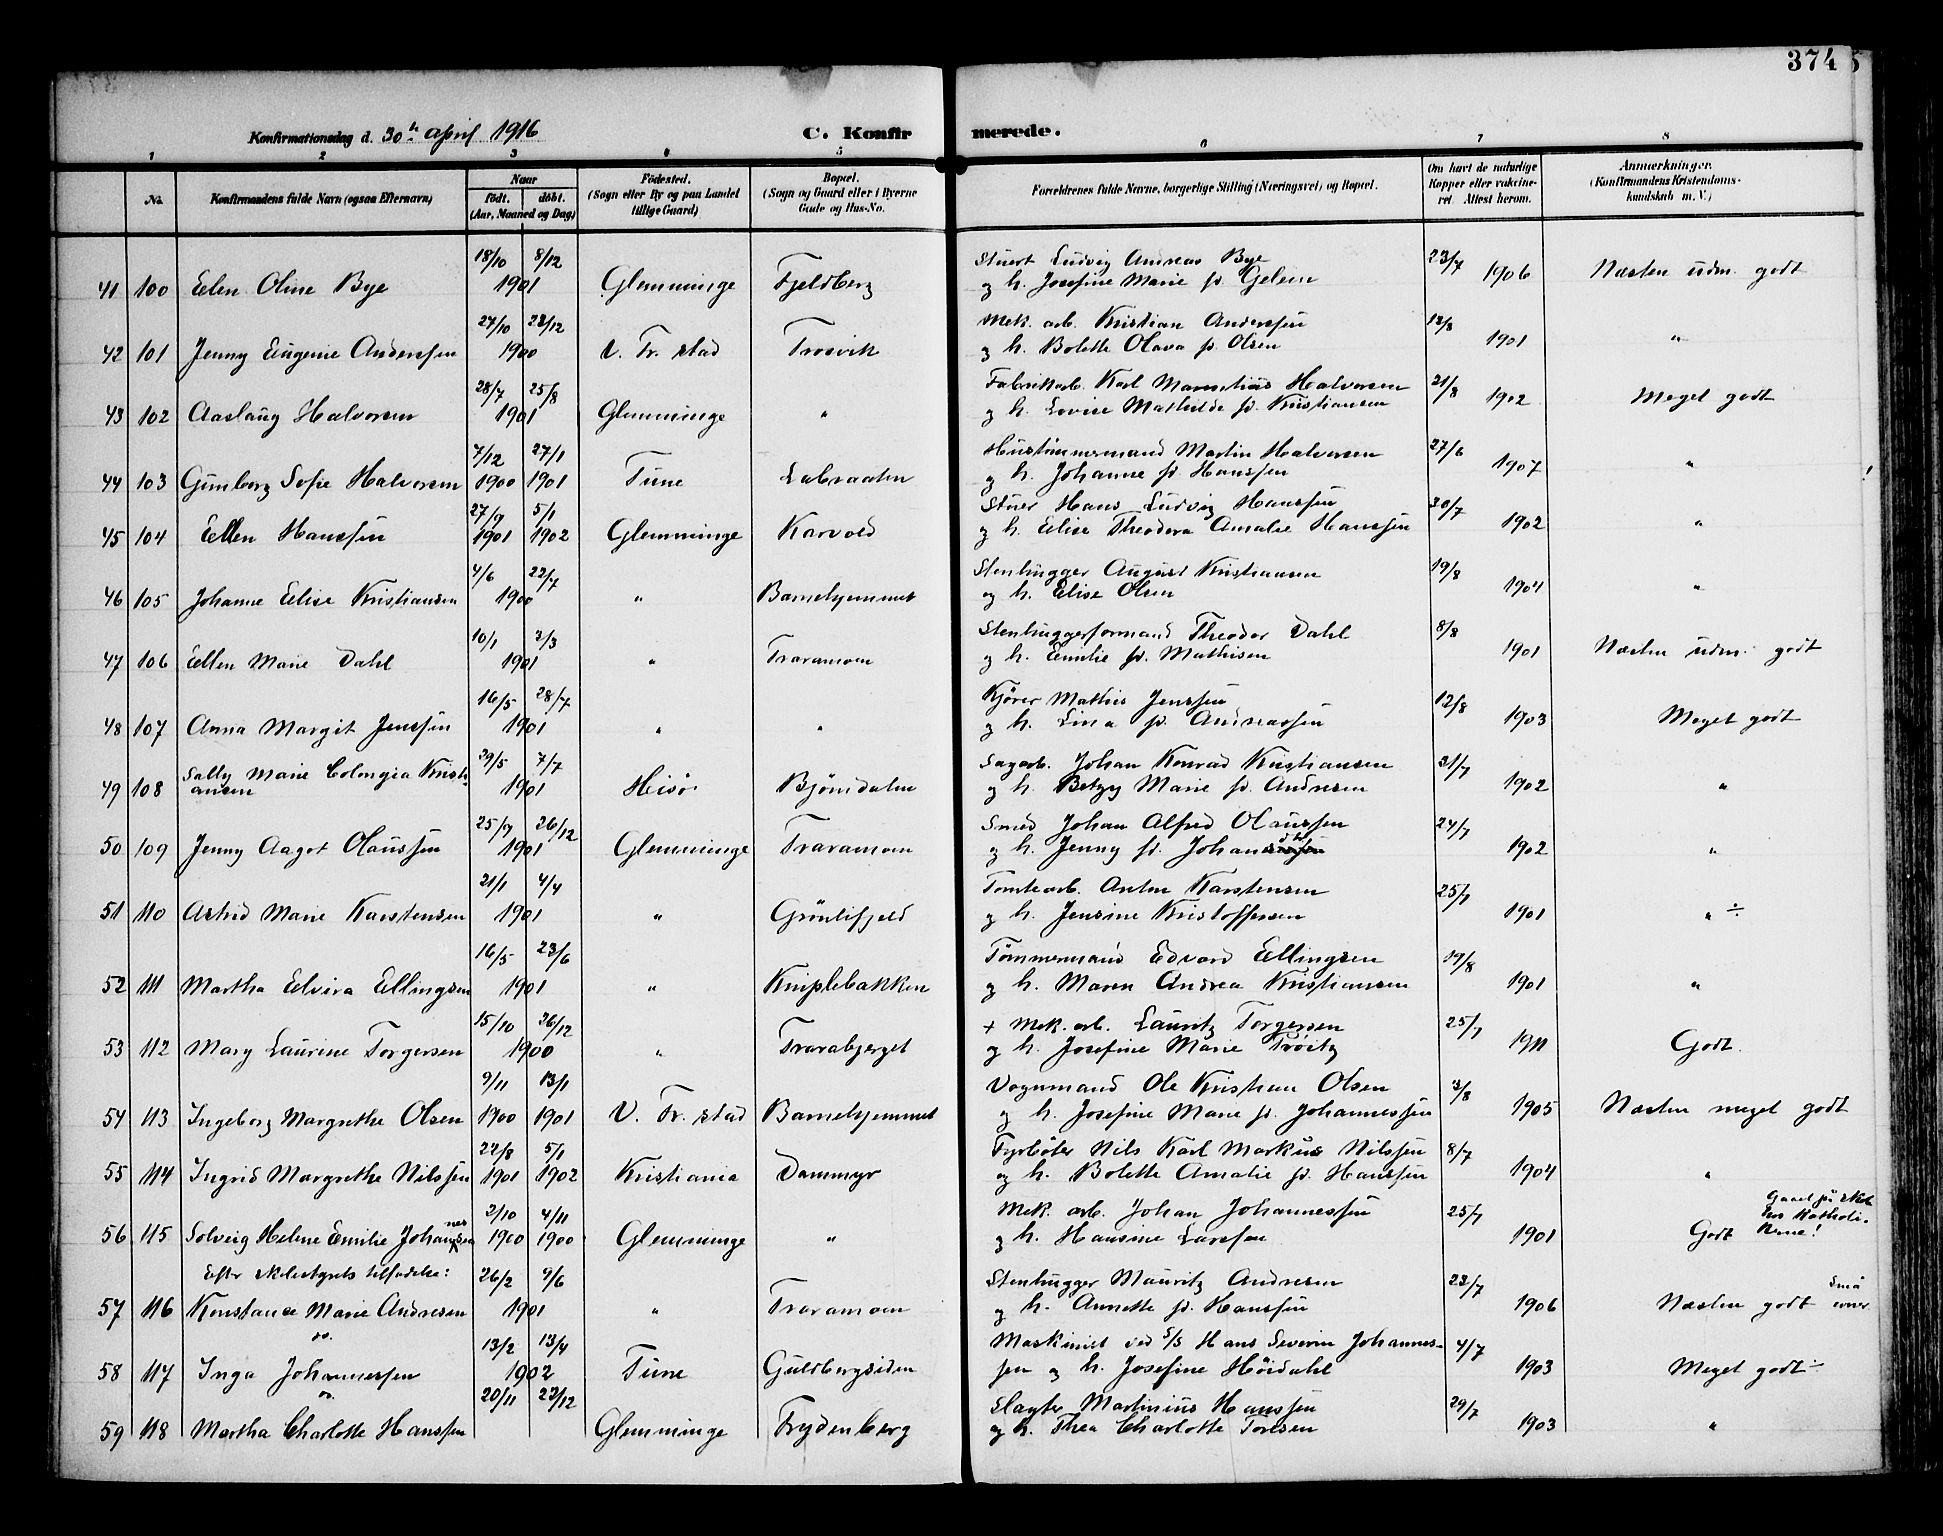 374
Konfirmationsdag d. 30h april 1916
C. Konfirmerede.
1 2 3 4 5 6 7 8
No.
Konfirmandens fulde Navn (ogsaa Efternavn)
Naar
født. døbt.
(Aar, Maaned og Dag)
Fødested.
(Sogn eller By og paa Landet
tillige Gaard)
Bopæl.
(Sogn og Gaard eller i Byerne
Gade og Hus-No.
Forældrenes fulde Navne, borgerlige Stilling (Næringsvei) og Bopæl.
Om havt de naturlige
Kopper eller vakcine-
ret. Attest herom.
Anmærkninger.
(Konfirmandens Kristendoms-
kundskab m. V.)
18/10 8/12 Stuert Ludvig Andreas Bye 23/7
41 100 Elen Oline Bye 1901 Glemminge Fjeldberg og h. Josefine Marie f. Gelein 1906 Næsten udm. godt
27/10 23/12 Mek. arb. Kristian Anderssen 13/8
42 101 Jenny Eugenie Anderssen 1900 V. Fr. stad Trosvik og h. Bolette Olava f. Olsen 1901 "
28/7 25/8 Fabrikarb. Karl Halvorsen 21/8
43 102 Aaslaug Halvorsen 1901 Glemminge " og h. Lovise Mathilde f. Kristiansen 1902 Meget godt
7/12 27/1 Hustømmermand Martin Halvorsen 27/6
44 103 Gunborg Sofie Halvorsen 1900 1901 Tune Labraaten og h. Johanne f. Hanssen 1907 "
27/9 5/1 Stuer Hans Ludvig Hanssen 30/7
45 104 Ellen Hanssen 1901 1902 Glemminge Karvold og h. Elise Theodora Amalie Hanssen 1902 "
4/6 22/7 Stenhugger August Kristiansen 19/8
46 105 Johanne Elise Kristiansen 1900 " Barnehjemmet og h. Elise Olsen 1904 "
10/1 3/3 Stenhuggerformand Theodor Dahl 8/8
47 106 Ellen Marie Dahl 1901 " Traramoen og h. Emilie f. Mathisen 1901 Næsten udm. godt
16/5 28/7 Kjører Mathis Jenssen 12/8
48 107 Anna Margit Jenssen 1901 " " og h. Lina f. Andreassen 1903 Meget godt
Sally Marie Colongia Kristi- 29/5 7/7 Sagarb. Johan Konrad Kristiansen 31/7
49 108 ansen 1901 Hisø Bjørndalen og h. Betzy Marie f. Andresen 1902 "
25/9 26/12 Smed Johan Alfred Olaussen 24/7
50 109 Jenny Aagot Olaussen 1901 Glemminge Traramoen og h. Jenny f. Johans 1902 "
21/1 4/4 Tomtearb. Anton Karstensen 25/7
51 110 Astrid Marie Karstensen 1901 " Grønlifjeld og h. Jensine Kristoffersen 1901 " ÷
16/5 23/6 Tømmermand Edvard Ellingsen 19/8
52 111 Martha Elvira Ellingsen 1901 " Kniplebakken og h. Maren Andrea Kristiansen 1901 "
15/10 26/12 + Mek. arb. Lauritz Torgersen 25/7
53 112 Mary Laurine Torgersen 1900 " Trarabjerget og h. Josefine Marie Trøitz 1911 Godt.
9/11 13/1 Vognmand Ole Kristian Olsen 3/8
54 113 Ingeborg Margrethe Olsen 1900 1901 V. Fr. stad Barnehjemmet og h. Josefine Marie f. Johannessen 1905 Næsten meget godt
22/8 5/1 Fyrbøter Nils Karl Markus Nilssen 8/7
55 114 Ingrid Margrethe Nilssen 1901 1902 Kristiania Dammyr og h. Bolette Amalie f. Hanssen 1904 "
2/10 4/11 Mek. arb. Johan Johannessen 25/7 Gaaet på skole
hos Katholi-
56 115 Solveig Helene Emilie Johannessen 1900 1900 Glemminge " og h. Hansine Larssen 1901 Godt kerne!
Efter skolestyrets tilladelse: 26/2 9/6 Stenhugger Mauritz Andresen 23/7 Små
57 116 Konstance Marie Andresen 1901 " Traramoen og h. Annette f. Hanssen 1906 Næsten godt evner
do. 13/2 13/4 Maskinist ved S/S Hans Severin Johannes- 4/7
58 117 Inga Johannessen 1902 Tune Guldbergsiden sen og h. Josefine Høidahl 1903 Meget godt ÷
do. 20/11 23/12 Slagter Martinius Hanssen 29/7
59 118 Martha Charlotte Hanssen Glemminge Frydenberg og h. Thea Charlotte Torlsen 1903 "